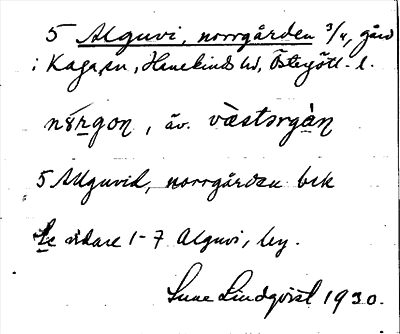 5 Alguvi, norrgården 3/4, gård
i Kaga sn, Hanekinds hd, Östergötl. l.
nŏrgon, äv. västərgàn
5 Alguvid, norrgården bek
Se vidare 1-7 Alguvi, by.
Sune Lindqvist 1930.